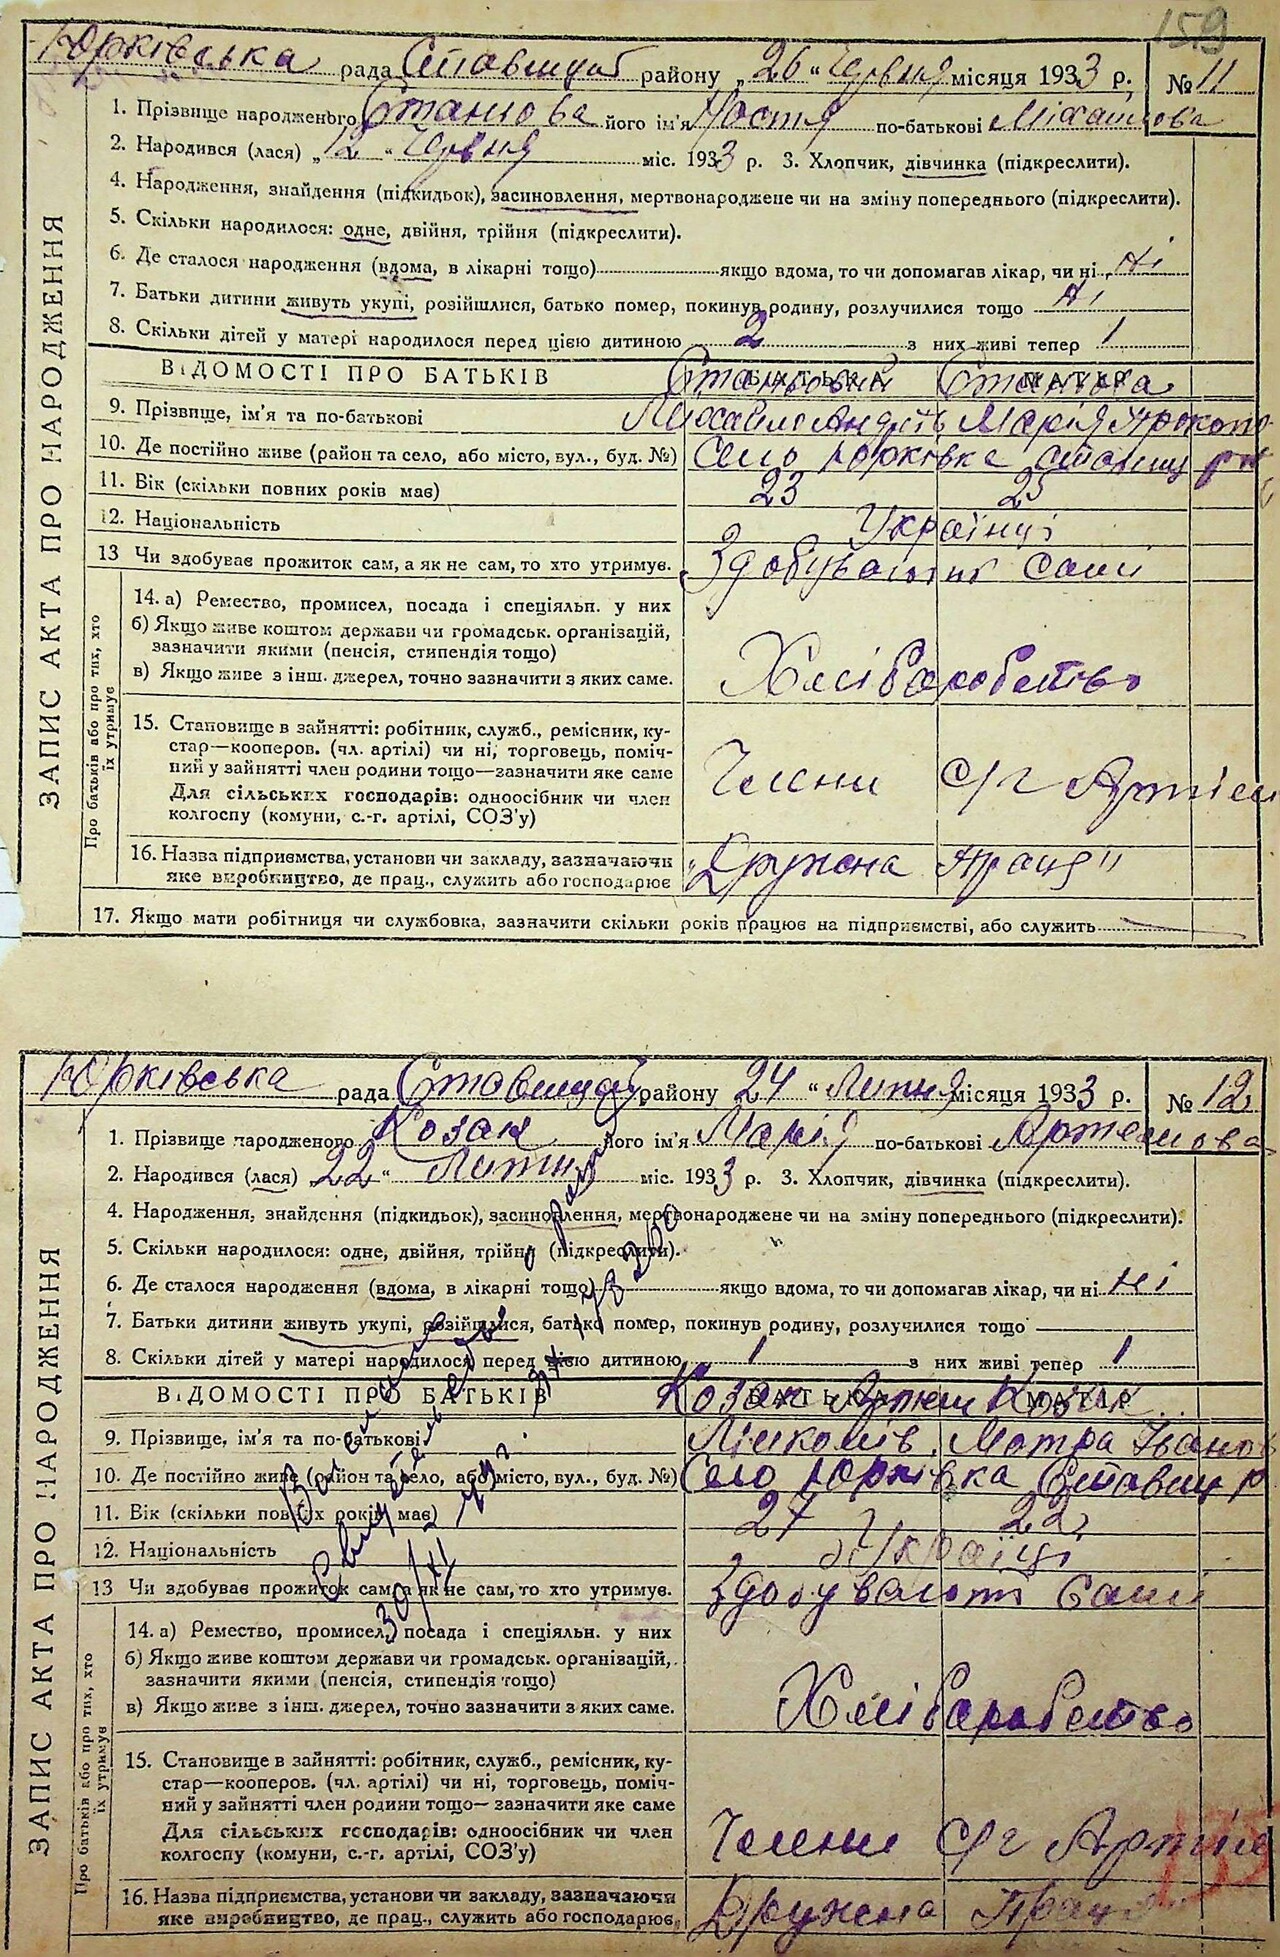 159
Юрківська рада Ставищан району „26“ Червня місяця 1933 р. № 11
1. Прізвище народженого Станіова його ім'я Настя по-батькові Міхайлова
2. Народився (лася) „12“ Червня міс. 1933 р. 3. Хлопчик, дівчинка (підкреслити).
4. Народження, знайдення (підкидьок), засиновлення, мертвонароджене чи на зміну попереднього (підкреслити).
5. Скільки народилося: одне, двійня, трійня (підкреслити).
6. Де сталося народження (вдома, в лікарні тощо) якщо вдома, то чи допомагав лікар, чи ні Ні
7. Батьки дитини живуть укупі, розійшлися, батько помер, покинув родину, розлучилися тощо Ні
8. Скільки дітей у матері народилося перед цією дитиною 2 з них живі тепер 1
ВІДОМОСТІ ПРО БАТЬКІВ БАТЬКА МАТИР
9. Прізвище, ім'я та по-батькові Михайло Андрів Марія Прокопо
10. Де постійно живе (район та село, або місто, вул., буд. №) Село Юрківка ставищ рн
11. Вік (скільки повних років має) 23 25
12. Національність Українці
13 Чи здобуває прожиток сам, а як не сам, то хто утримує. Здобувають Самі
14. а) Ремество, промисел, посада і спеціяльн. у них
б) Якщо живе коштом держави чи громадськ. організацій,
зазначити якими (пенсія, стипендія тощо)
в) Якщо живе з інш. джерел, точно зазначити з яких саме.
Хліборобство
15. Становище в зайнятті: робітник, служб., ремісник, ку-
стар—кооперов. (чл. артілі) чи ні, торговець, поміч-
ний у зайнятті член родини тощо—зазначити яке саме
Для сільських господарів: одноосібник чи член
колгоспу (комуни, с.-г. артілі, СОЗ'у)
Члени С/г Артіли
16. Назва підприємства, установи чи закладу, зазначаючи
яке виробництво, де прац., служить або господарює
„Дружна Праця"
17. Якщо мати робітниця чи службовка, зазначити скільки років працює на підприємстві, або служить
ЗАПИС АКТА ПРО НАРОДЖЕННЯ
Про батьків або про тих, хто
їх утримує
Юрківська рада Ставищан району 24 “ Липня місяця 1933 р. № 12
1. Прізвище народженого Козак його ім'я Марія по-батькові Артемова
2. Народився (лася) 22 “ Липня міс. 1933 р. 3. Хлопчик, дівчинка (підкреслити).
4. Народження, знайдення (підкидьок), засиновлення, мертвонароджене чи на зміну попереднього (підкреслити).
5. Скільки народилося: одне, двійня, трійня (підкреслити).
6. Де сталося народження (вдома, в лікарні тощо) якщо вдома, то чи допомагав лікар, чи ні Ні
7. Батьки дитини живуть укупі, розійшлися, батько помер, покинув родину, розлучилися тощо
8. Скільки дітей у матері народилося перед цією дитиною 1 з них живі тепер 1
ВІДОМОСТІ ПРО БАТЬКІВ БАТЬКА МАТИР
Козак Артем Козак
9. Прізвище, ім'я та по-батькові Мотра Іванов
10. Де постійно живе (район та село, або місто, вул., буд. №) Село Юрківка Ставищ р
11. Вік (скільки повних років має) 27 22
12. Національність Українці
13 Чи здобуває прожиток сам, а як не сам, то хто утримує. Здобувають Самі
14. а) Ремество, промисел, посада і спеціяльн. у них
б) Якщо живе коштом держави чи громадськ. організацій,
зазначити якими (пенсія, стипендія тощо)
в) Якщо живе з інш. джерел, точно зазначити з яких саме.
Хліборобство
15. Становище в зайнятті: робітник, служб., ремісник, ку-
стар—кооперов. (чл. артілі) чи ні, торговець, поміч-
ний у зайнятті член родини тощо— зазначити яке саме
Для сільських господарів: одноосібник чи член
колгоспу (комуни, с.-г. артілі, СОЗ'у)
Члени С/г Артіли
16. Назва підприємства, установи чи закладу, зазначаючи
яке виробництво, де прац., служить або господарює
Дружна Праця
ЗАПИС АКТА ПРО НАРОДЖЕННЯ
Про батьків або про тих, хто
їх утримує